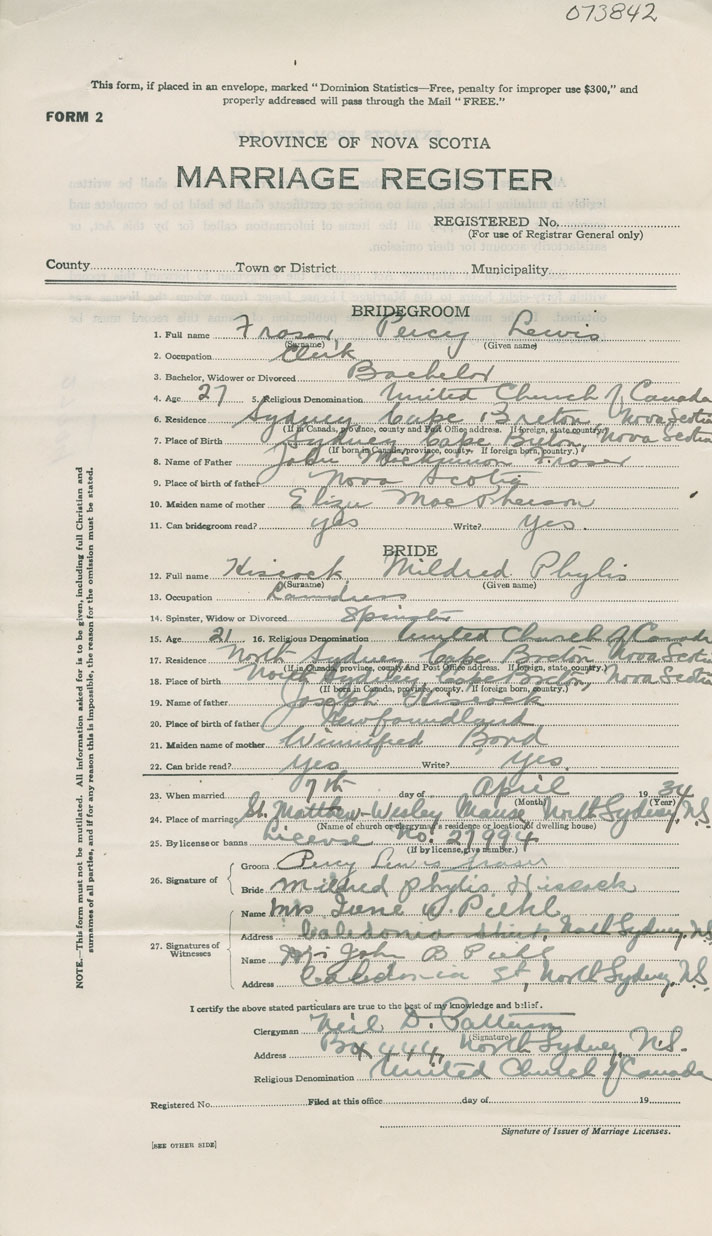 073842
This form, if placed in an envelope, marked "Dominion Statistics—Free, penalty for improper use $300," and
properly addressed will pass through the Mail "FREE."
FORM 2
PROVINCE OF NOVA SCOTIA
MARRIAGE REGISTER
REGISTERED No.
(For use of Registrar General only)
County Town or District Municipality
BRIDEGROOM
1. Full name Fraser, Percy Lewis
(Surname) (Given name)
2. Occupation Clerk
3. Bachelor, Widower or Divorced Bachelor
4. Age 27 5. Religious Denomination United Church of Canada
6. Residence Sydney Cape Breton, Nova Scotia
(If in Canada, province, county and Post Office address. If foreign, state country.)
7. Place of Birth Sydney Cape Breton, Nova Scotia
(If born in Canada, province, county. If foreign born, country.)
8. Name of Father John MacKinnon Fraser
9. Place of birth of father Nova Scotia
10. Maiden name of mother Eliza MacPherson
11. Can bridegroom read? yes Write? yes.
BRIDE
12. Full name Hiscock, Mildred Phylis
(Surname) (Given name)
13. Occupation Laundress
14. Spinster, Widow or Divorced Spinster
15. Age 21 16. Religious Denomination United Church of Canada
17. Residence North Sydney Cape Breton Nova Scotia
(If in Canada, province, county and Post Office address. If foreign, state country.)
18. Place of birth North Sydney Cape Breton, Nova Scotia
(If born in Canada, province, county. If foreign born, country.)
19. Name of father Joseph Hiscock
20. Place of birth of father Newfoundland
21. Maiden name of mother Winnifred Bond
22. Can bride read? yes Write? yes.
23. When married 7th day of April 1934
(Month) (Year)
24. Place of marriage St. Matthew-Wesley Manse North Sydney, N.S.
(Name of church or clergyman's residence or location of dwelling house)
25. By license or banns License No. 27994
(If by license, give number.)
26. Signature of Groom Percy Lewis Fraser
Bride Mildred Phylis Hiscock
27. Signatures of Witnesses Name Mrs June W. Piehl
Address Caledonia Street, North Sydney, N.S.
Name Mr John B Piehl
Address Caledonia St, North Sydney, N.S.
I certify the above stated particulars are true to the best of my knowledge and belief.
Clergyman Neil D. Patterson
(Signature)
Address Box 444, North Sydney, N.S.
Religious Denomination United Church of Canada
Registered No. Filed at this office day of 19
Signature of Issuer of Marriage Licenses.
[SEE OTHER SIDE]
NOTE.—This form must not be mutilated. All information asked for is to be given, including full Christian and
surnames of all parties, and if for any reason this is impossible, the reason for the omission must be stated.